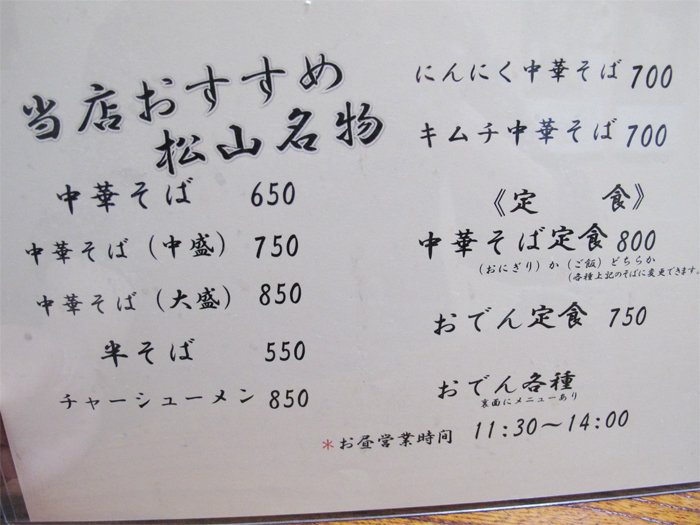 当店おすすめ
松山名物
中華そば 650
中華そば(中盛) 750
中華そば(大盛) 850
半そば 550
チャーシューメン 850
にんにく中華そば 700
キムチ中華そば 700
《定 食》
中華そば定食 800
(おにぎり)か(ご飯)どちらか
(各種上記のそばに変更できます。
おでん定食 750
おでん各種
裏面にメニューあり
*お昼営業時間 11:30〜14:00